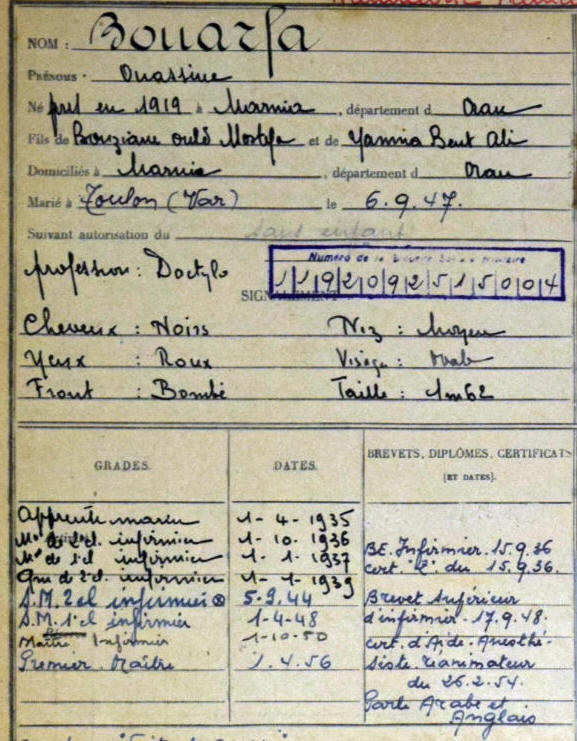 NOM : Bouarfa
PRÉNOMS - Ouassine
Né prst en 1919 à Marnia, département d Oran
Fils de Bouziane ould Mostefa et de Yamina Bent Ali
Domiciliés à Marnia, département d Oran
Marié à Toulon (Var) le 6.9.47.
Suivant autorisation du sans enfant
profession : Dactylo
Numéro de la
1 1 9 2 0 9 2 5 1 5 0 0 4
SIGNALEMENT
Cheveux : Noirs Nez : Moyen
Yeux : Roux Visage : Ovale
Front : Bombé Taille : 1m62
GRADES. DATES. BREVETS, DIPLÔMES, CERTIFICATS
(ET DATES).
Apprenti marin 1-4-1935
Mot de 2cl. infirmier 1-10.1936
Mot de 1cl infirmier 1-1-1937 BE. Infirmier. 15.9.36
Qm de 2cl. infirmier 1-1-1939 cert. "Z" du 15.9.36.
S.M. 2cl infirmier ⊗ 5.9.44 Brevet supérieur
S.M. 1cl infirmier 1-4-48 d'infirmier. 17.9.48.
Maître Infirmier 1-10-50 cert. d'Aide-Anesthé-
Premier Maître 1.4.56 siste réanimateur
du 26.2.54.
Parle Arabe et
Anglais